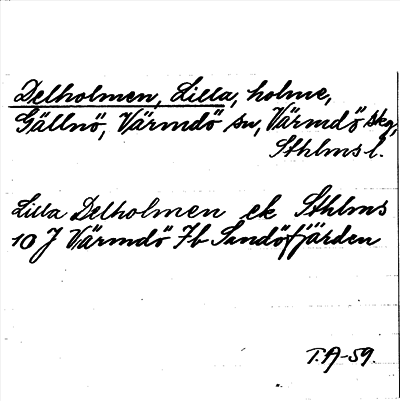 Delholmen, Lilla, holme,
Gällnö, Värmdö sn, Värmdö skg,
Sthlms l.
Lilla Delholmen ek Sthlms
10 J Värmdö 7b Sandöfjärden
T.A-59.